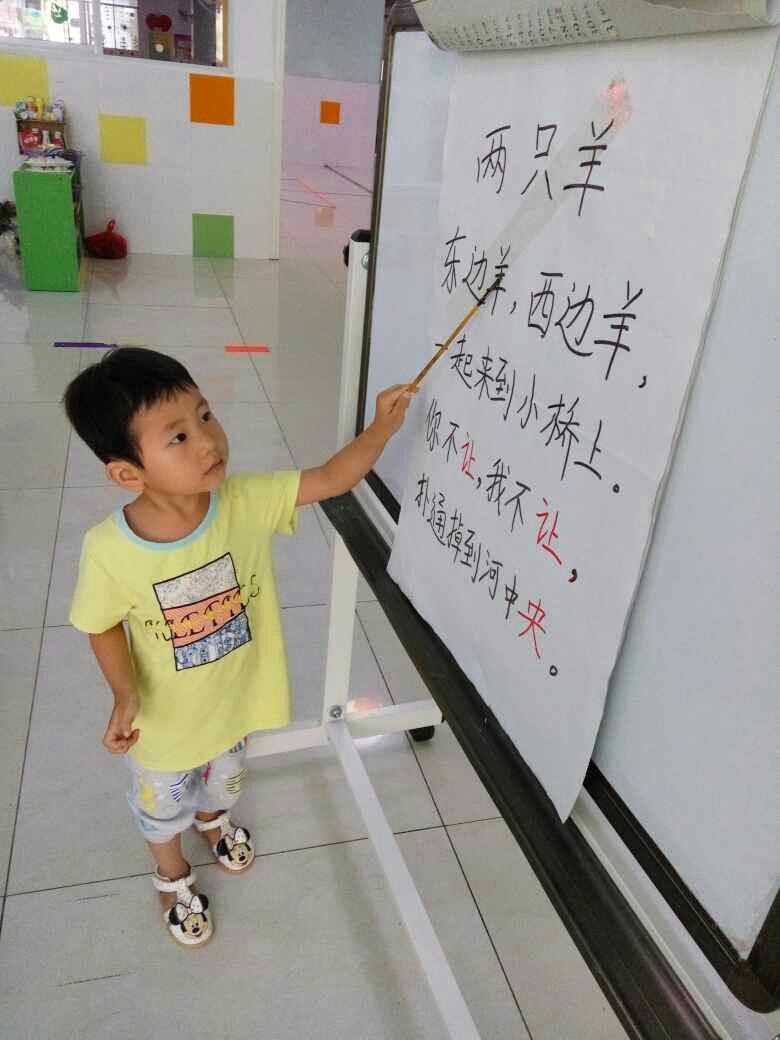 两只羊
东边羊，西边羊，
一起来到小桥上。
你不让，我不让，
扑通掉到河中央。